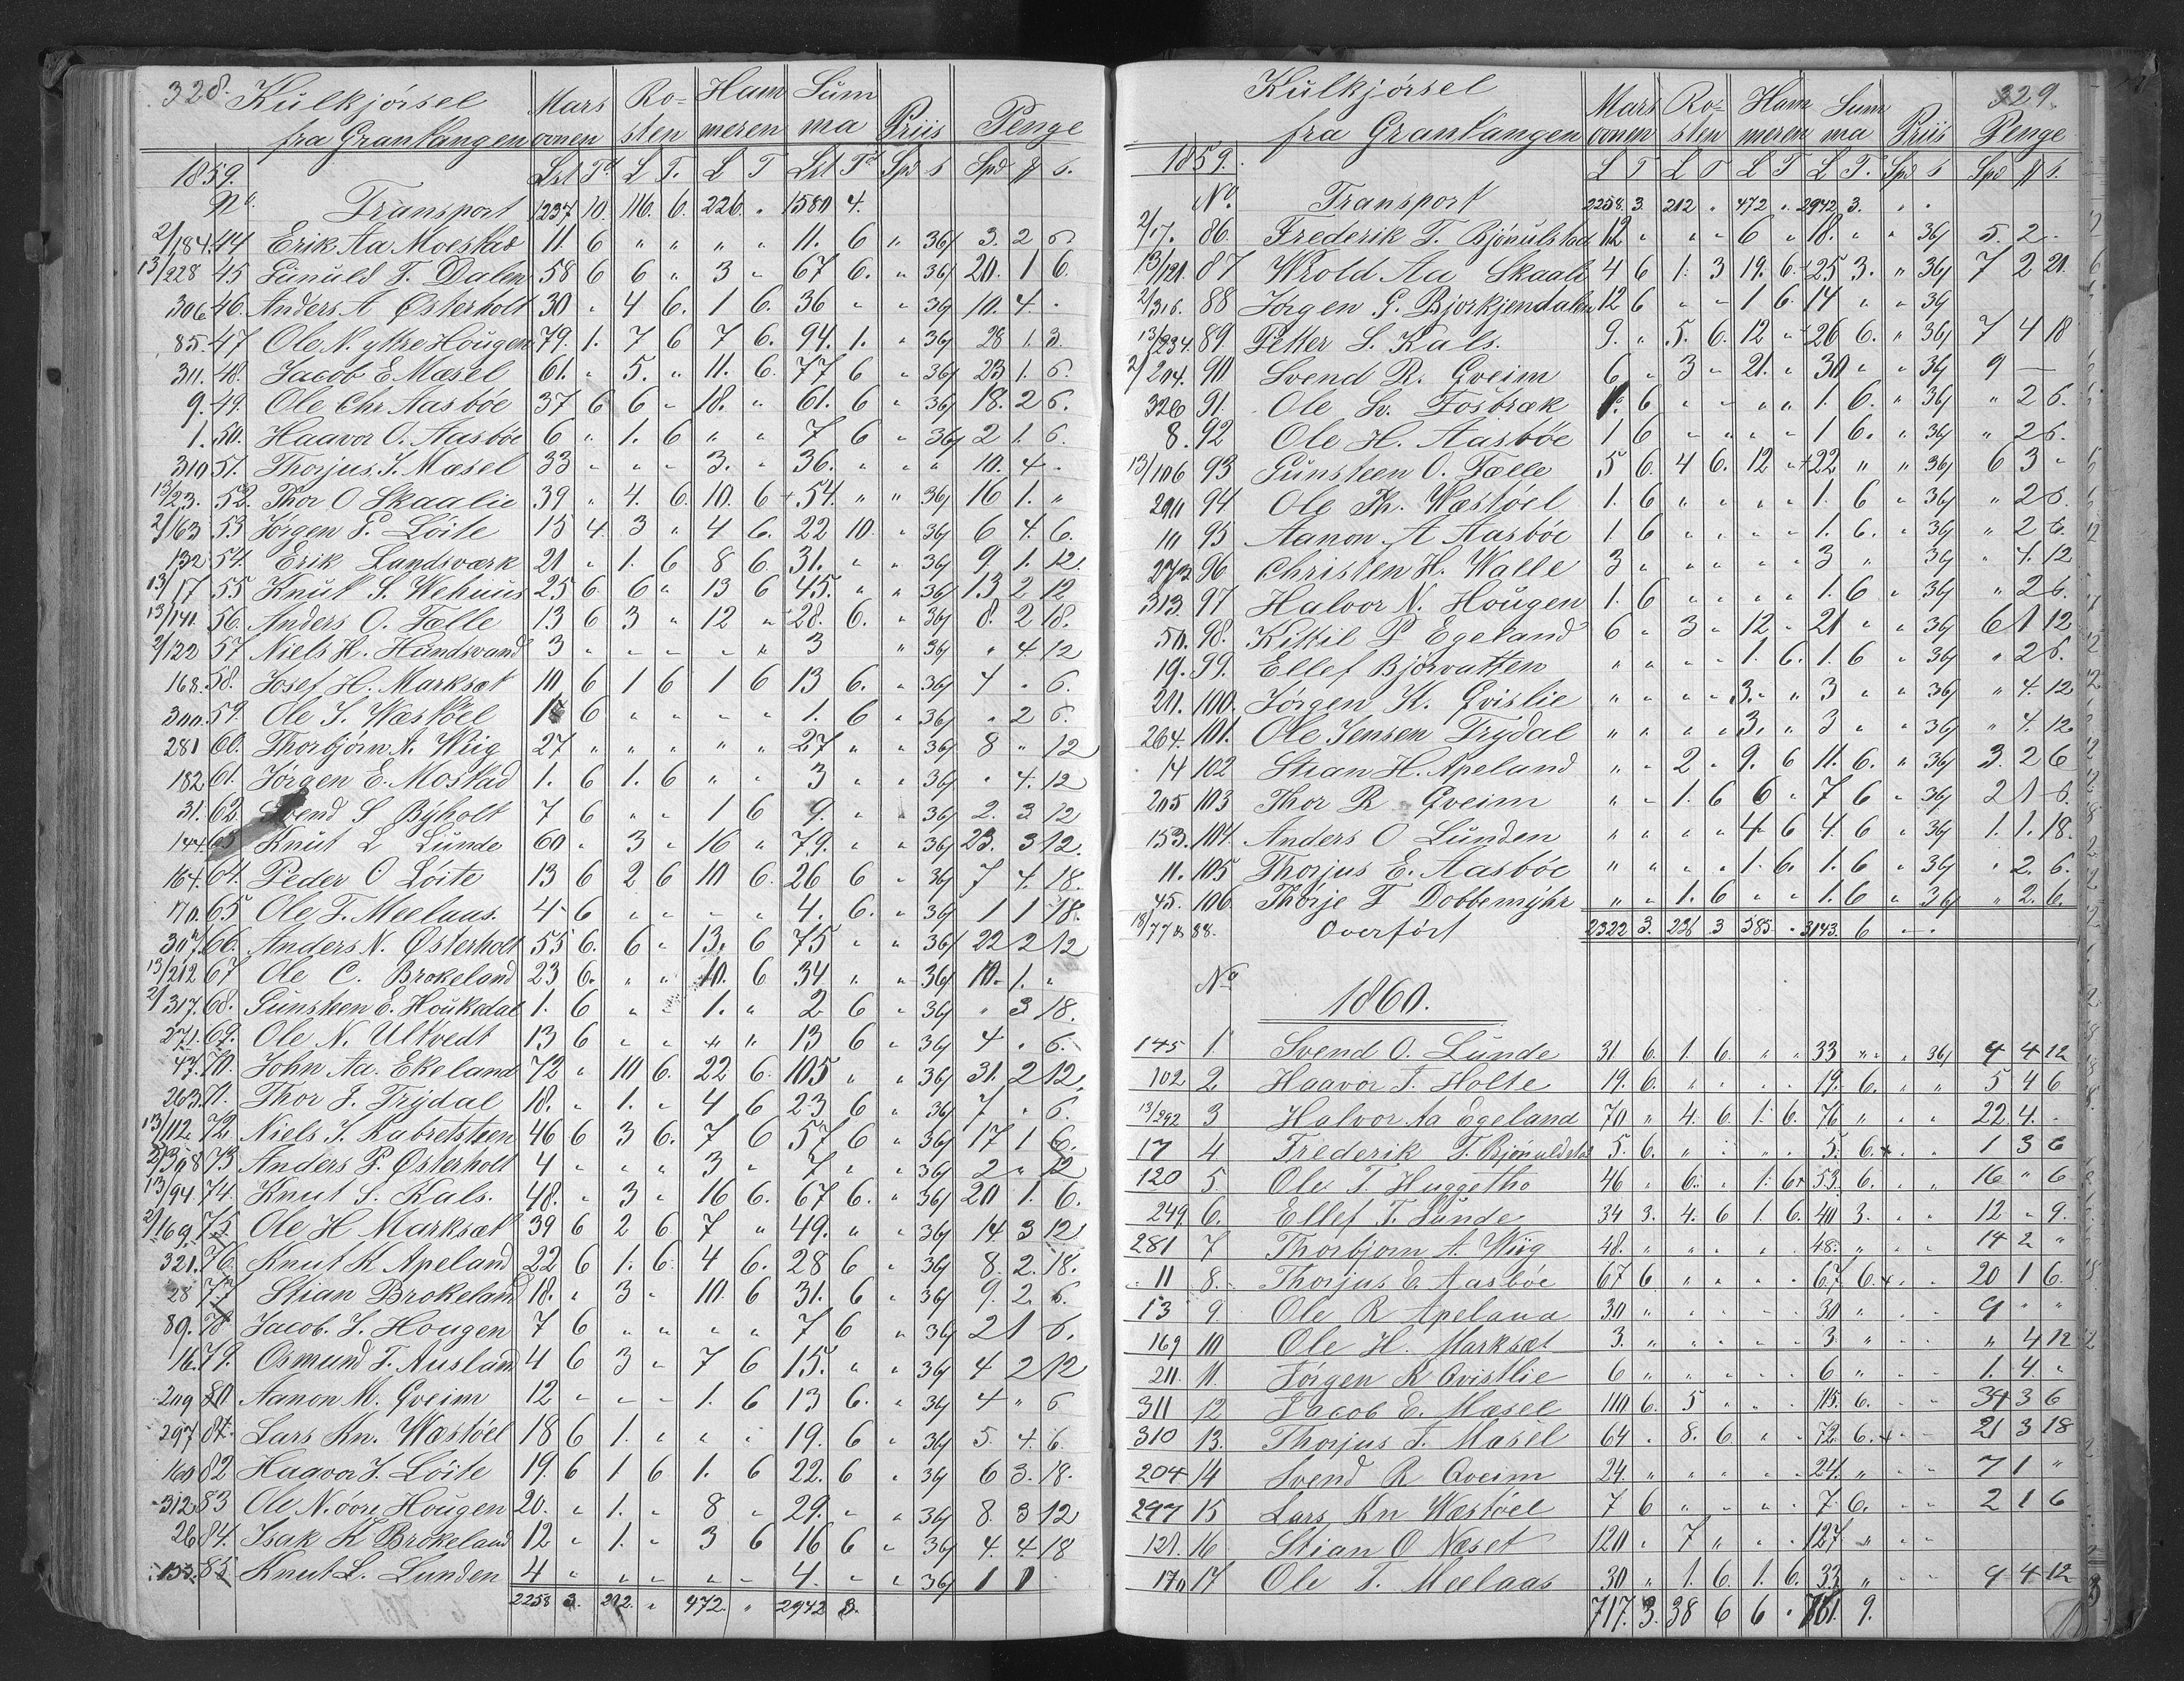 328. Kulkjørsel Mars Ro- Ham Sum
fra Grankangen ovnen sten meren ma Priis Penge
1859. Lst Td L T. L T Lst Td Spd s Spd # s.
No. Transport 1237 10. 116. 6. 226. " 1580 4.
2/184. 44 Erik Aa Moestad 11. 6 " " " " 11. 6 " 36 3. 2 6.
13/228 45 Gunuld T. Dalen 58 6 6 " 3 " 67 6. " 36 20. 1 6.
306 46. Anders A Østerholt 30 " 4 6. 1 6. 36 " " 36 10. 4. "
85. 47 Ole N. ytre Hougen 79. 1. 7 6 7 6. 94. 1. " 36 28 1. 3.
311. 48. Jacob E Mæsel 61. " 5. " 11. 6. 77 6 " 36 23 1. 6.
9. 49. Ole Chr Aasbøe 37 6 6 " 18. " 61. 6 " 36 18. 2 6.
1. 50. Haavor O. Aasbøe 6 " 1. 6 " " 7 6 " 36 2 1. 6.
310 51. Thorjus. J. Mæsel 33 " " " 3. " 36. " " " 10. 4. "
13/23. 52. Thor O Skaalie 39 " 4. 6. 10. 6 54. " " 36 16 1. "
2/163 53 Jørgen P. Løite 15 4. 3 " 4 6. 22 10. " 36 6 4. 6.
132 54. Erik Landsværk 21 " 1. 6 8 6. 31. " " 36 9 1. 12.
13/17 55 Knut S. Wehuus 25 6 6 " 13 6 45. " " 36 13 2 12
13/141. 56. Anders O. Fælle 13 6 3 " 12 " 28. 6. " 36 8. 2 18.
2/122 57 Niels H. Handsvand 3 " " " " " 3 " 36 " 4. 12
168. 58. Josef H. Marksæt 10 6 1 6 1 6 13 6. " 36 4 " 6.
300. 59. Ole J. Wæstøel 1 6 " " " " 1. 6 " 36 " 2 6.
281 60. Thorbjørn A. Wiig 27 " " " " " 27 " " 36 8 " 12
182 61. Jørgen E. Mostad 1. 6 1. 6 " " 3 " " 36 " 4. 12
31. 62. Svend S Byholt 7 6 " " 1 6 9. " " 36 2. 3 12
144 63 Knut L Lunde 60 " 3 " 16 " 79. " " 36 23. 3 12.
164. 64. Peder O Løite 13 6 2 6 10 6. 26 6 " 36 7 4. 18.
170. 65 Ole T. Meelaas. 4 6 " " " " 4. 6. " 36 1 1 18.
307. 66. Anders N. Østerholt 55 6. 6 " 13. 6 75 " " 36 22 2 12
13/212 67 Ole C. Brokeland 23 6. " " 10. 6 34 " " 36 10. 1. "
2/317. 68. Gunsteen E. Houksdal 1. 6 " " 1. " 2 6 " 36 " 3 18.
271. 69. Ole N. Ultvedt 13 6 " " " " 13 6 " 36 4 " 6.
47. 70. John Aa. Ekeland 72 " 10 6. 22 6. 105 " " 36 31. 2 12.
263. 71. Thor J. Trydal 18. " 1. " 4 6 23 6 " 36 7 " 6.
13/112. 72. Niels J. Rabretsteen 46 6 3 6. 7 6 57 6 " 36 17 1 6.
2/308 73 Anders P. Østerholt 4 " " " 3 " 7 " " 36 2 " 12
13/94. 74. Knut S. Kals. 48. " 3 " 16 6. 67 6. " 36 20 1. 6.
2/169. 75. Ole H Marksæt 39 6 2 6 7 " 49. " " 36 14 3 12
321. 76. Knut K Apeland 22 6 1. 6. 4 6. 28 6 " 36 8. 2. 18.
28 77 Stian Brokeland 18. " 3 " 10. 6 31. 6 " 36 9. 2. 6.
89. 78. Jacob. J. Hougen 7 6 " " " " 7 6 " 36 2 1 6.
16. 79. Osmund T. Ausland 4 6 3 " 7 6 15. " " 36 4 2 12
209 80 Aanon M. Qveim 12 " " " 1. 6 13 6. " 36 4 " 6
297 81. Lars Kn. Wæstøel 18 6 1. " " " 19. 6 " 36 5. 4. 6.
160 82 Haavor J. Løite 19. 6 1 6 1. 6 22. 6 " 36 6 3. 18.
312 83 Ole N. øvre Hougen 20. " 1. " 8 " 29. " " 36 8. 3 12
26 84. Isak K Brokeland 12 " 1. " 3 6 16 6 " 36 4. 4. 18
155. 85. Knut L. Lunden 4 " " " " " 4. " " 36 1 1
2258 3. 212. " 472. " 2942 3.
Kulkjørsel Mars Ro- Ham Sum 329.
fra Grankangen ovnen sten meren ma Priis Penge
1859. L T L T L T L T. Spd s Spd # s.
No. Transport 2258. 3 212 " 472 " 2942 3. " "
2/17. 86. Frederik T. Bjønulstad 12 " " " 6 " 18. " " 36 5. 2 "
13/121. 87 Wrold Aa Skaali 4 6 1. 3 19. 6. 25 3. " 36 7 2 21.
2/316. 88 Jørgen G. Bjorkjendalen 12 6 " " 1 6. 14 " " 36
13/234. 89 Petter S. Kals. 9. " 5. 6. 12 " 26 6. " 36 7 4 18
2/204. 90 Svend R. Qveim 6 " 3 " 21. " 30 " " 36 9 —
326 91. Ole Sv. Fosbræk 1. 6 " " " " 1. 6. " 36 " 2 6.
8. 92 Ole H. Aasbøe 1 6 " " " " 1 6. " 36 " 2 6.
13/106 93 Gunsteen O. Fælle 5 6. 4 6. 12 " 22 " " 36 6 3 "
290 94 Ole Th. Wæstøel 1. 6 " " " " 1. 6 " 36 " 2 6.
10 95 Aanon A Aasbøe 1 6 " " " " 1. 6. " 36 " 2 6.
273 96 Christen H. Walle 3 " " " " " 3 " 36 " 4. 12
313. 97 Halvor N. Hougen 1. 6 " " " " 1. 6 " 36 " 2 6.
50. 98. Kittil P Egeland 6 " 3 " 12 " 21 " " 36 6 1 12
19. 99. Ellef Bjorvatten " " " " 1. 6. 1. 6 " 36 " 2 6.
211. 100. Jørgen K. Qvislie " " " " 3. " 3 " " 36 " 4. 12
264. 101. Ole Jensen Trydal " " " " 3. " 3 " " 36 " 4. 12
14 102 Stian H. Apeland " " 2 " 9. 6 11. 6. " 36 3. 2 6
205 103 Thor R Qveim " " 1. 6 6 " 7 6 " 36 2 1 6.
153. 104. Anders O Lunden " " " " 4 6 4. 6 " 36 1. 1. 18.
11. 105 Thorjus E. Aasbøe " " " " 1. 6. 1. 6 " 36 " 2. 6.
45. 106 Thorje T Dobbemyhr " " 1. 6 " " 1. 6 " 36 " 2. 6.
88. Overført 2322 3. 226 3 585. " 3143. 6 " "
No 1860.
145 1. Svend O. Lunde 31. 6. 1. 6. " " 33 " " 36 9 4 12
102 2 Haavor T. Holte 19. 6. " " " " 19. 6. " " 5 4 6
13/292 3 Halvor Aa Egeland 70 " 4. 6 1. 6. 76 " " " 22 4. "
17 4 Frederik T. Bjønuldstad 5. 6. " " " " 5. 6. " " 1 3 6
120 5. Ole T. Huggetho 46 " 6. " 1. 6 53. 6. " " 16 " 6
249 6. Ellef T. Lunde 34 3. 4. 6 1. 6. 40 3. " " 12 " 9.
281 7 Thorbjorn A. Wiig 48. " " " " " 48. " " " 14 2 "
11 8. Thorjus E. Aasbøe 67 6 " " " " 67 6. " " 20 1 6.
13 9 Ole R Apeland 30 " " " " " 30 " " " 9 " "
169 10 Ole H. Marksæt 3. " " " " " 3. " " " " 4 12
211. 11. Jørgen K Qvistlie 6 " " " " " 6 " " " 1. 4. "
311 12 Jacob E. Mæsel 110 6. 5 " " " 115. 6. " " 34 3 6
310 13. Thorjus J. Mæsel 64 " 8. 6 " " 72 6. " " 21 3 18
204 14 Svend R Qveim 24. " " " " " 24. " " " 7 1 "
297 15 Lars Kn Wæstøel 7 6 " " " " 7 6. " " 2 1 6
121. 16 Stian O Næset 120 " 7 " " " 127 " " "
170 17 Ole T. Meelaas 30 " 1. 6. 1. 6. 33 " " " 9 4 12
717. 3. 38 6 6 " 761. 9.